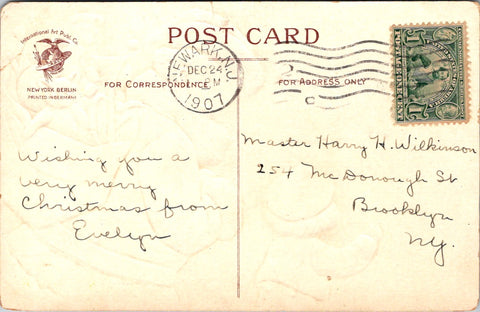 International Art Publ. Co.
NEW YORK BERLIN
PRINTED IN GERMANY
POST CARD
FOR CORRESPONDENCE
FOR ADDRESS ONLY
NEWARK, N.J.
DEC 24
M
1907
C
1 1
Wishing you a
very merry
Christmas from
Evelyn
Master Harry H. Wilkinson
254 McDonough St
Brooklyn
N.Y.